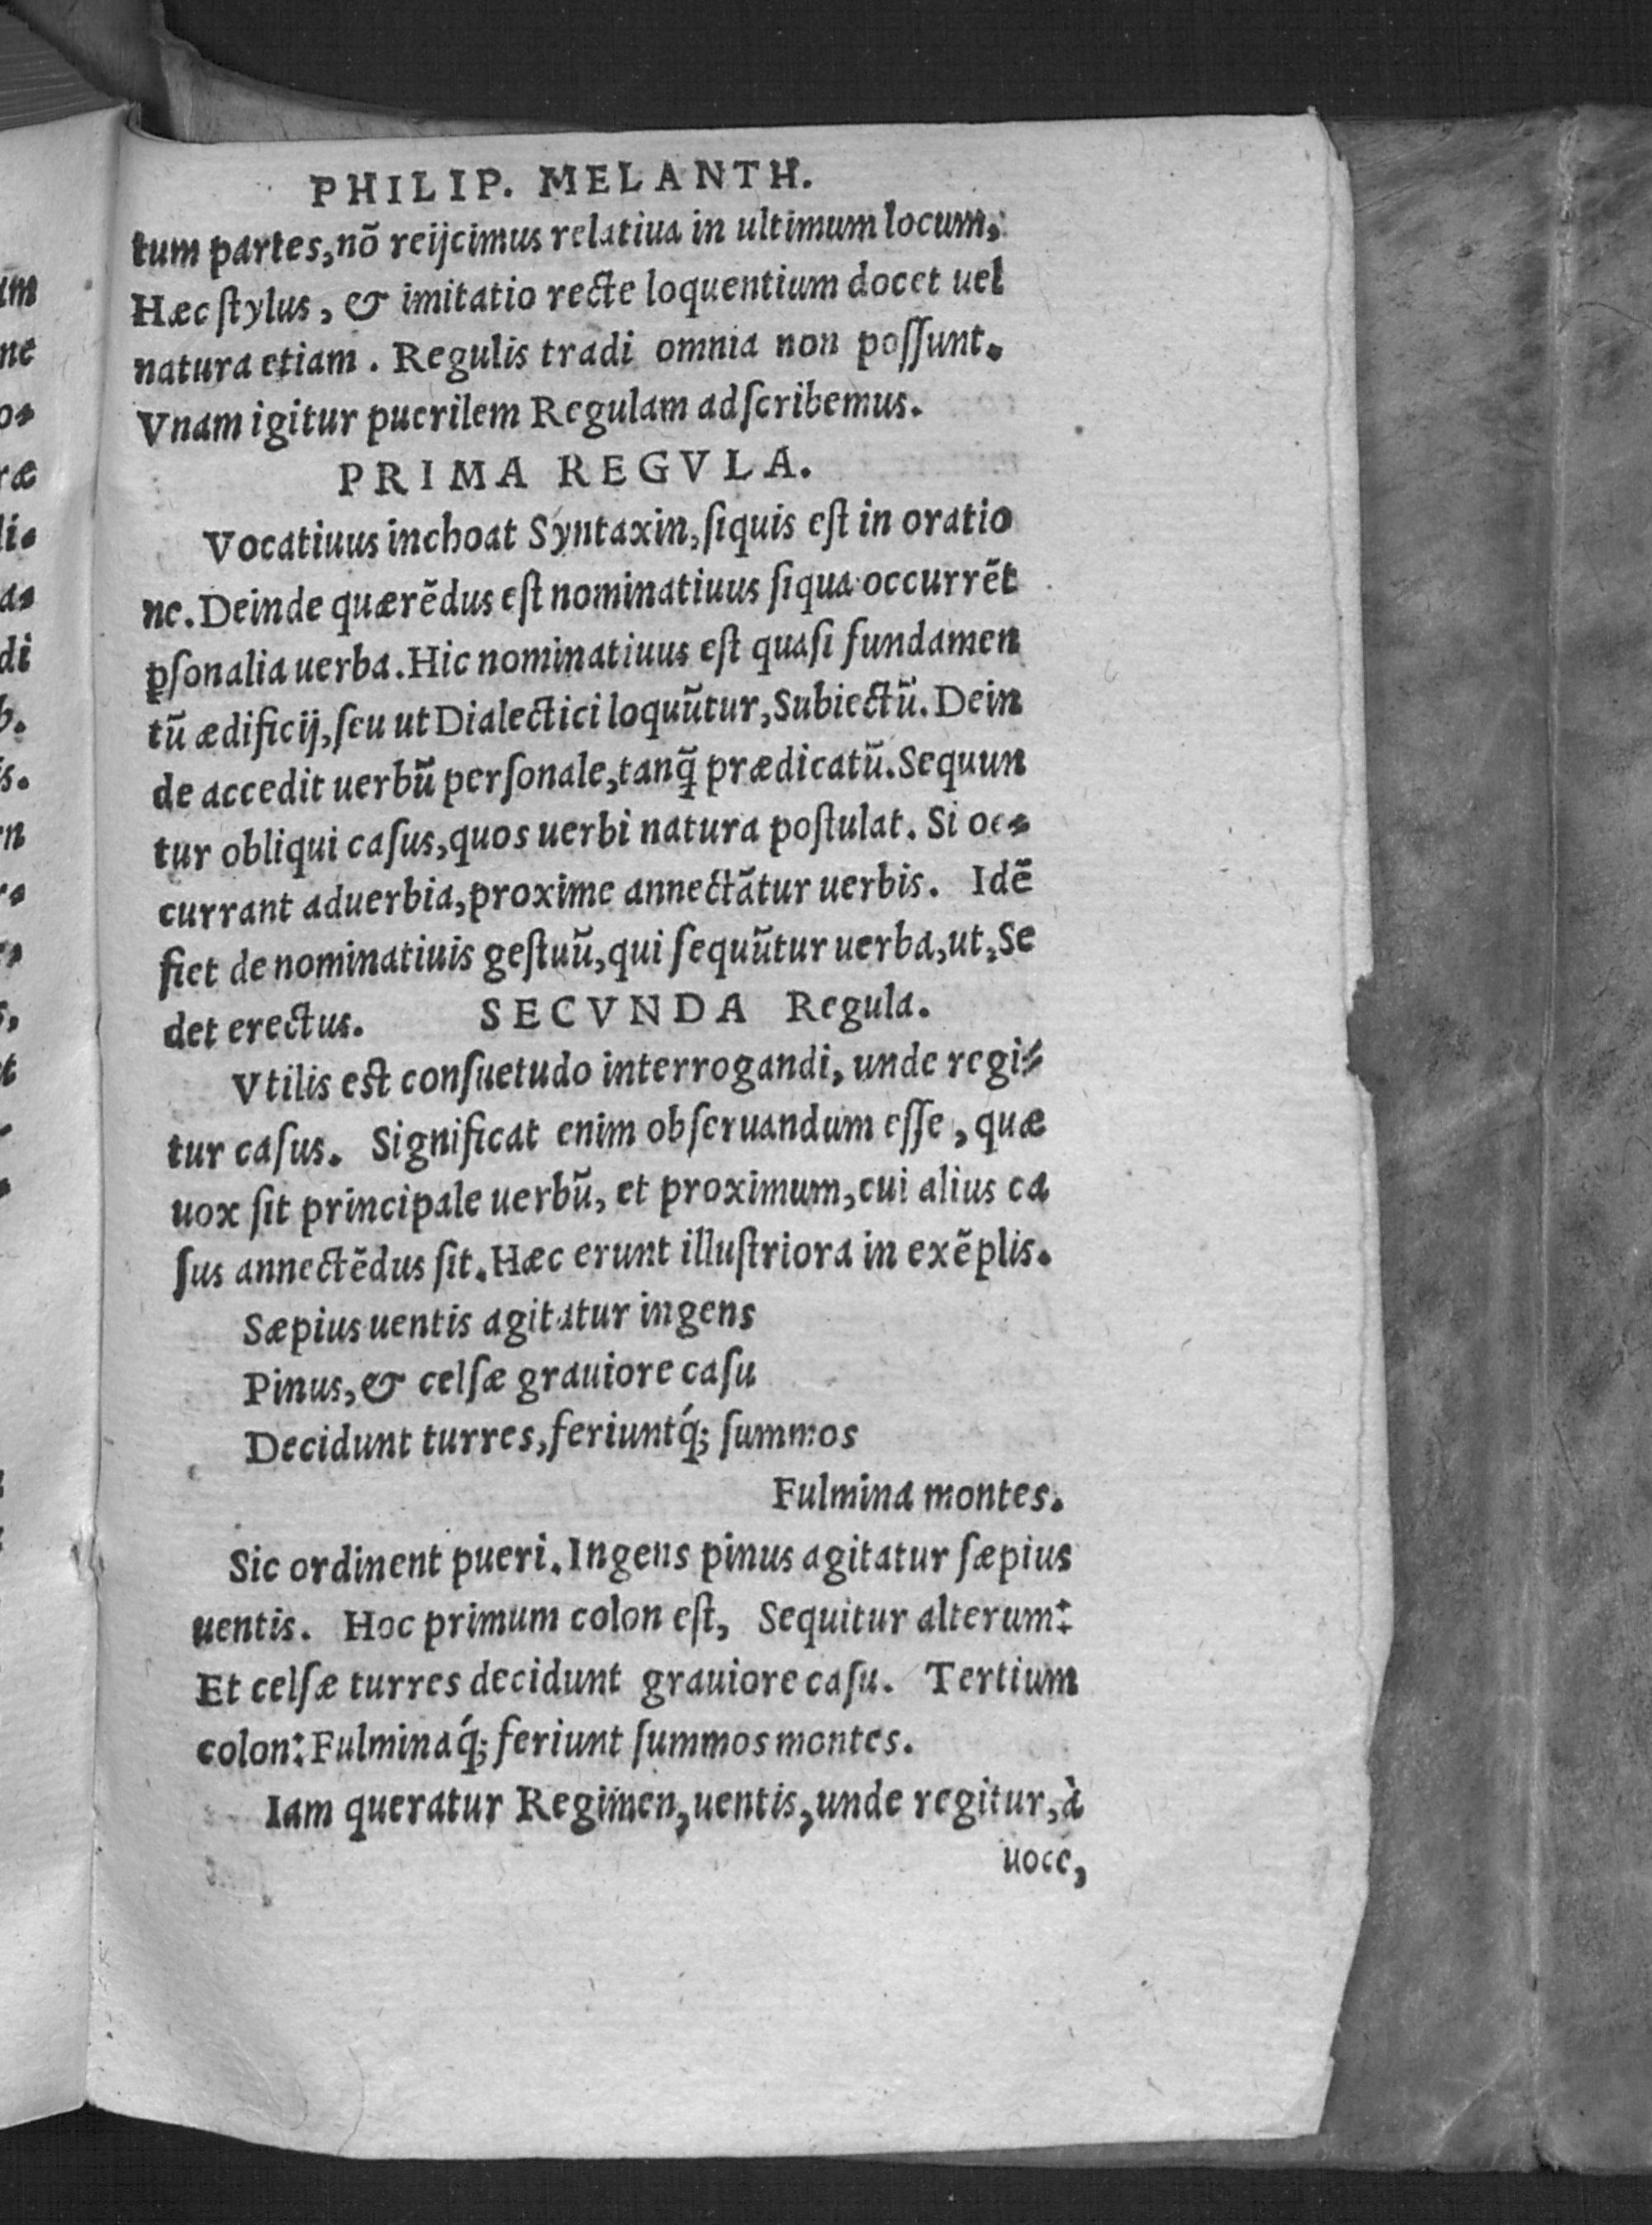 PHILIP. MELANTH.
tum partes, nõ reijcimus relatiua in ultimum locum,
Hæc ſtylus, & imitatio recte loquentium docet uel
natura etiam. Regulis tradi omnia non poſſunt.
Vnam igitur puerilem Regulam adſcribemus.
PRIMA REGVLA.
Vocatiuus inchoat Syntaxin, ſiquis eſt in oratio
ne. Deinde quærẽdus eſt nominatiuus ſiqua occurrẽt
ꝑſonalia uerba. Hic nominatiuus eſt quaſi fundamen
tũ ædificij, ſeu ut Dialectici loquũtur, Subiectũ. Dein
de accedit uerbũ perſonale, tanq̃ prædicatũ. Sequun
tur obliqui caſus, quos uerbi natura poſtulat. Si oc-
currant aduerbia, proxime annectãtur uerbis. Idẽ
fiet de nominatiuis geſtuũ, qui ſequũtur uerba, ut, Se
det erectus. SECVNDA Regula.
Vtilis est conſuetudo interrogandi, unde regi-
tur caſus. Significat enim obſeruandum eſſe, quæ
uox ſit principale uerbũ, et proximum, cui alius ca
ſus annectẽdus ſit. Hæc erunt illuſtriora in exẽplis.
Sæpius uentis agitatur ingens
Pinus, & celſæ grauiore caſu
Decidunt turres, feriuntq́; ſummos
Fulmina montes.
Sic ordinent pueri. Ingens pinus agitatur ſæpius
uentis. Hoc primum colon eſt, Sequitur alterum:
Et celſæ turres decidunt grauiore caſu. Tertium
colon: Fulminaq́; feriunt ſummos montes.
Iam queratur Regimen, uentis, unde regitur, à
uoce,